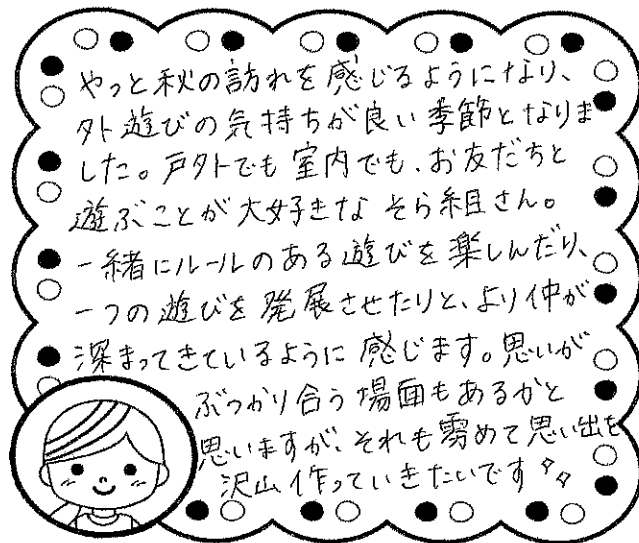 やっと秋の訪れを感じるようになり、
外遊びの気持ちが良い季節となりま
した。戸外でも室内でも、お友だちと
遊ぶことが大好きな そら組さん。
一緒にルールのある遊びを楽しんだり、
一つの遊びを発展させたりと、より仲が
深まってきているように感じます。思いが
ぶつかり合う場面もあるかと
思いますが、それも含めて思い出を
沢山作っていきたいです